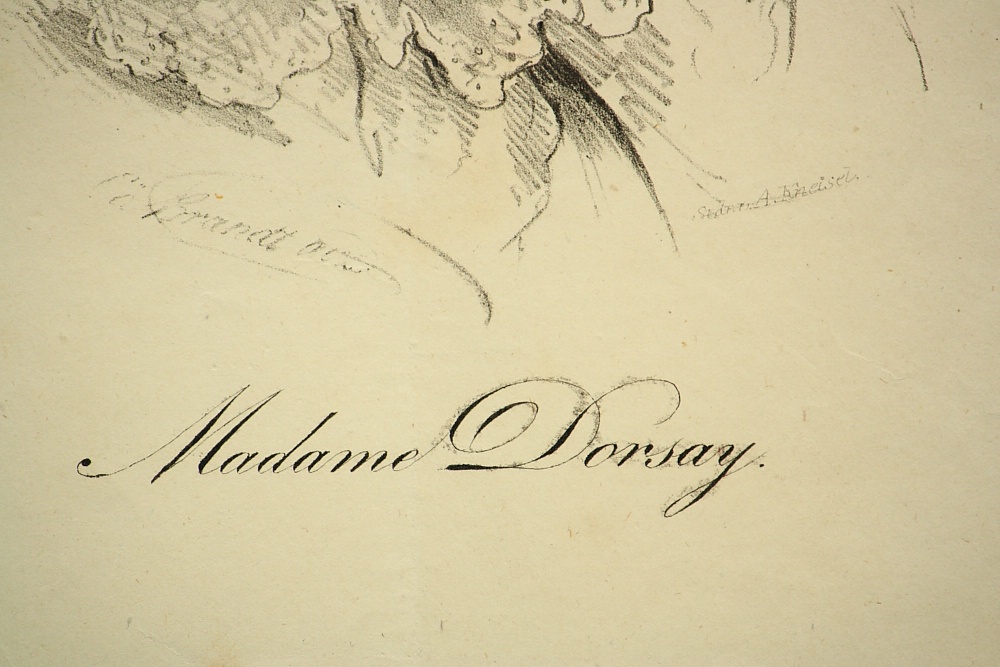 Brandt
A. Kneisel.
Madame Dorsay.